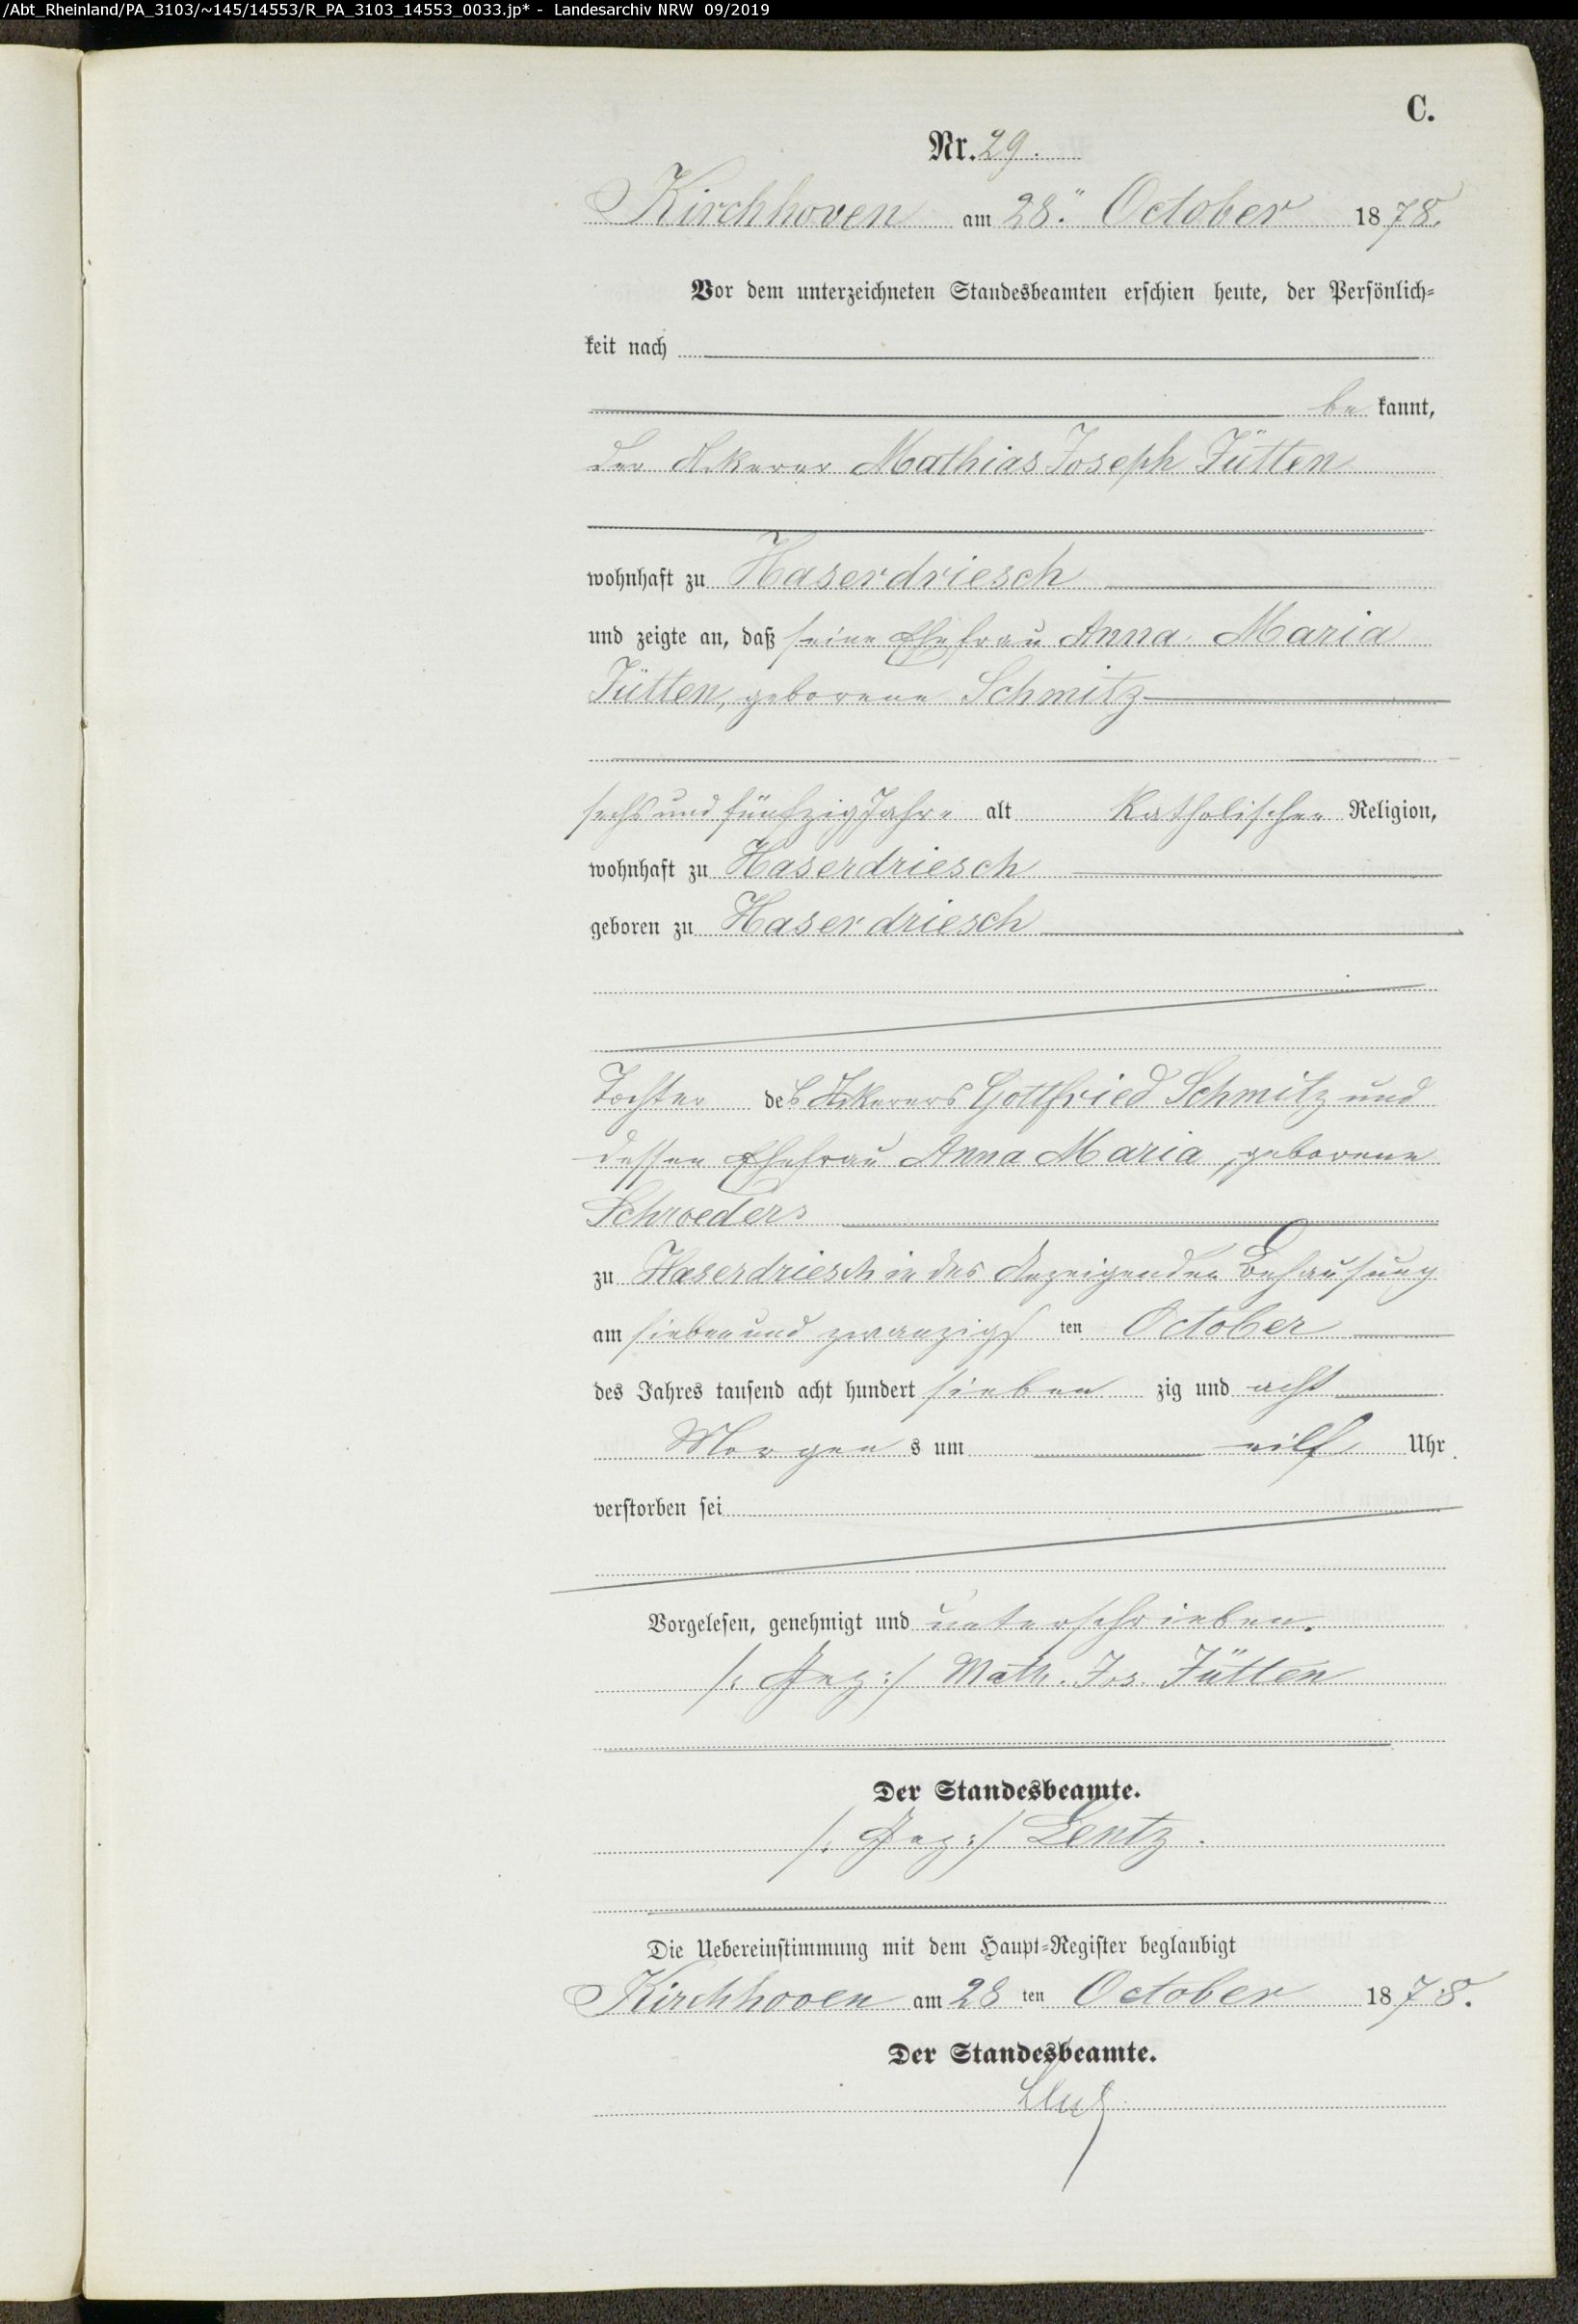 /Abt_Rheinland/PA_3103/~145/14553/R_PA_3103_14553_0033.jp* - Landesarchiv NRW 09/2019
C.
Nr. 29.
Kirchhoven am 28." October 1878.
Vor dem unterzeichneten Standesbeamten erschien heute, der Persönlich-
keit nach
be kannt,
der Akerer Mathias Joseph Jütten
wohnhaft zu Haserdriesch
und zeigte an, daß seine Ehefrau Anna Maria
Jütten, geborene Schmitz
sechs und fünfzig Jahre alt Katholischer Religion,
wohnhaft zu Haserdriesch
geboren zu Haserdriesch
Tochter des Akerers Gottfried Schmitz und
dessen Ehefrau Anna Maria, geborene
Schroeders
zu Haserdriesch in des Anzeigenden Behausung
am sieben und zwanzigs ten October
des Jahres tausend acht hundert sieben zig und acht
Morgen s um eilf Uhr
verstorben sei
Vorgelesen, genehmigt und unterschrieben.
/: Gez :/ Math. Jos. Jütten
Der Standesbeamte.
/: Gez :/ Lentz.
Die Uebereinstimmung mit dem Haupt-Register beglaubigt
Kirchhoven am 28 ten October 1878.
Der Standesbeamte.
Lentz